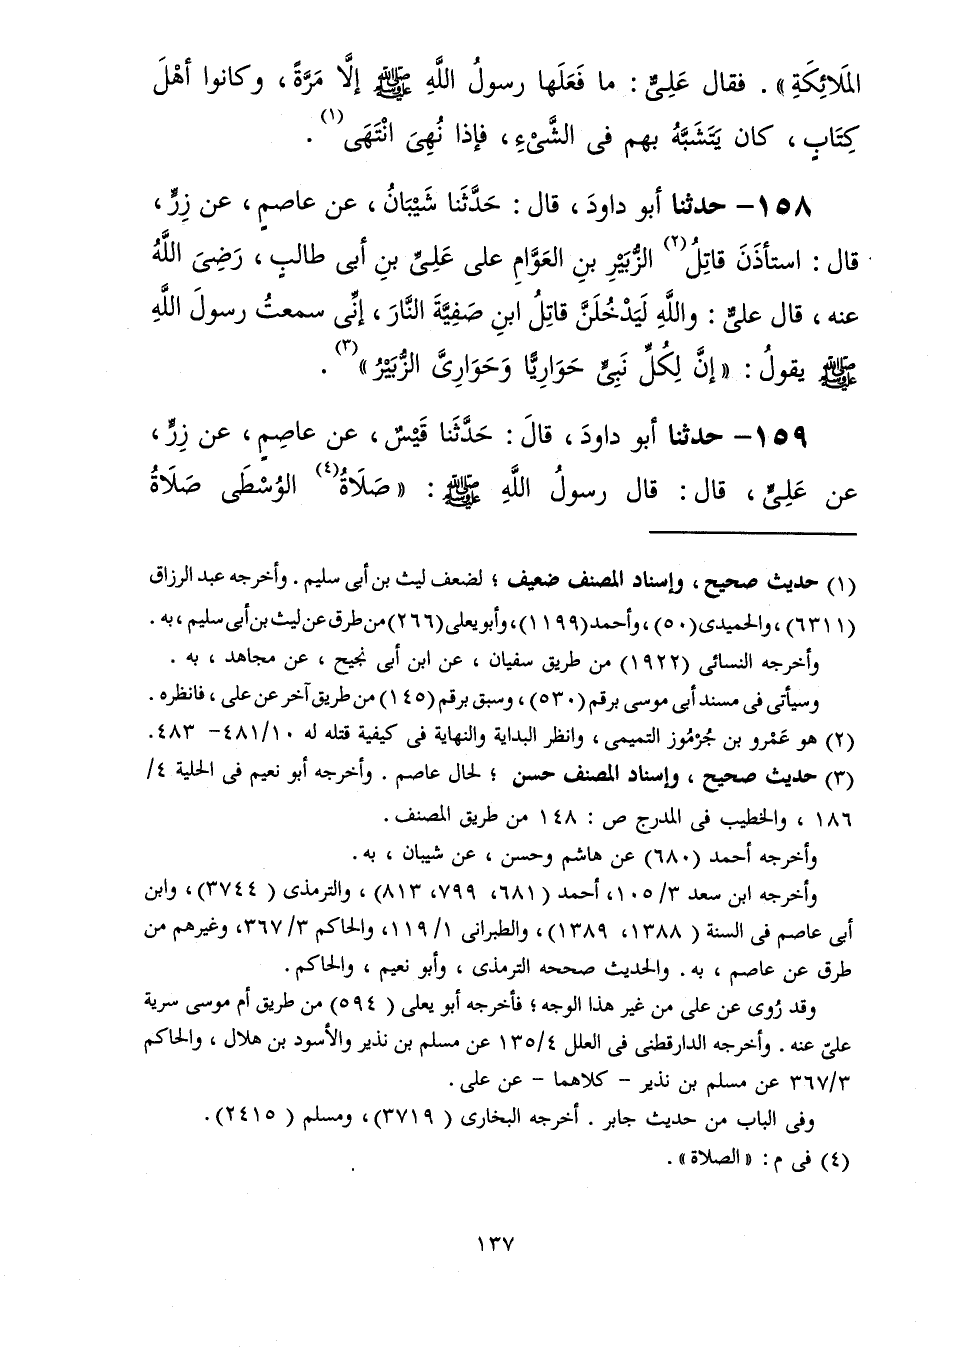 المَلائِكَةِ» . فقال عَلِىٌّ : ما فَعَلَها رسولُ اللَّهِ ﷺ إلَّا مَرَّةً ، وكانوا أهْلَ
كِتَابٍ ، كان يَتَشَبَّهُ بهم فى الشَّىْءِ ، فإذا نُهِىَ انْتَهَى(١) .
١٥٨- حدثنا أبو داودَ ، قال : حَدَّثَنا شَيْبَانُ ، عن عاصمٍ ، عن زِرٍّ ،
قال : استأذَنَ قاتِلُ(٢) الزُّبَيْرِ بنِ العَوَّامِ على عَلِىِّ بنِ أبى طالبٍ ، رَضِىَ اللَّهُ
عنه ، قال علىٌّ : واللَّهِ لَيَدْخُلَنَّ قاتِلُ ابنِ صَفِيَّةَ النَّارَ ، إنِّى سمعتُ رسولَ اللَّهِ
ﷺ يقولُ : «إنَّ لِكُلِّ نَبِىٍّ حَوَارِيًّا وَحَوَارِىَّ الزُّبَيْرُ»(٣) .
١٥٩- حدثنا أبو داودَ ، قالَ : حَدَّثَنا قَيْسٌ ، عن عاصِمٍ ، عن زِرٍّ ،
عن عَلِىٍّ ، قال : قال رسولُ اللَّهِ ﷺ : «صَلَاةُ(٤) الوُسْطَى صَلَاةُ
(١) حديث صحيح ، وإسناد المصنف ضعيف ؛ لضعف ليث بن أبى سليم . وأخرجه عبد الرزاق
(٦٣١١) ، والحميدى (٥٠) ، وأحمد (١١٩٩) ، وأبو يعلى (٢٦٦) من طرق عن ليث بن أبى سليم ، به .
وأخرجه النسائى (١٩٢٢) من طريق سفيان ، عن ابن أبى نجيح ، عن مجاهد ، به .
وسيأتى فى مسند أبى موسى برقم (٥٣٠) ، وسبق برقم (١٤٥) من طريق آخر عن على ، فانظره .
(٢) هو عَمْرو بن جُرْمُوز التميمى ، وانظر البداية والنهاية فى كيفية قتله له ٤٨١/١٠- ٤٨٣ .
(٣) حديث صحيح ، وإسناد المصنف حسن ؛ لحال عاصم . وأخرجه أبو نعيم فى الحلية ٤/
١٨٦ ، والخطيب فى المدرج ص : ١٤٨ من طريق المصنف .
وأخرجه أحمد (٦٨٠) عن هاشم وحسن ، عن شيبان ، به .
وأخرجه ابن سعد ١٠٥/٣ ، أحمد ( ٦٨١، ٧٩٩، ٨١٣) ، والترمذى ( ٣٧٤٤) ، وابن
أبى عاصم فى السنة ( ١٣٨٨، ١٣٨٩) ، والطبرانى ١١٩/١ ، والحاكم ٣٦٧/٣ ، وغيرهم من
طرق عن عاصم ، به . والحديث صححه الترمذى ، وأبو نعيم ، والحاكم .
وقد رُوى عن على من غير هذا الوجه ؛ فأخرجه أبو يعلى ( ٥٩٤) من طريق أم موسى سرية
علىّ عنه . وأخرجه الدارقطنى فى العلل ١٣٥/٤ عن مسلم بن نذير والأسود بن هلال ، والحاكم
٣٦٧/٣ عن مسلم بن نذير - كلاهما - عن على .
وفى الباب من حديث جابر . أخرجه البخارى ( ٣٧١٩) ، ومسلم ( ٢٤١٥) .
(٤) فى م : «الصلاة» .
١٣٧